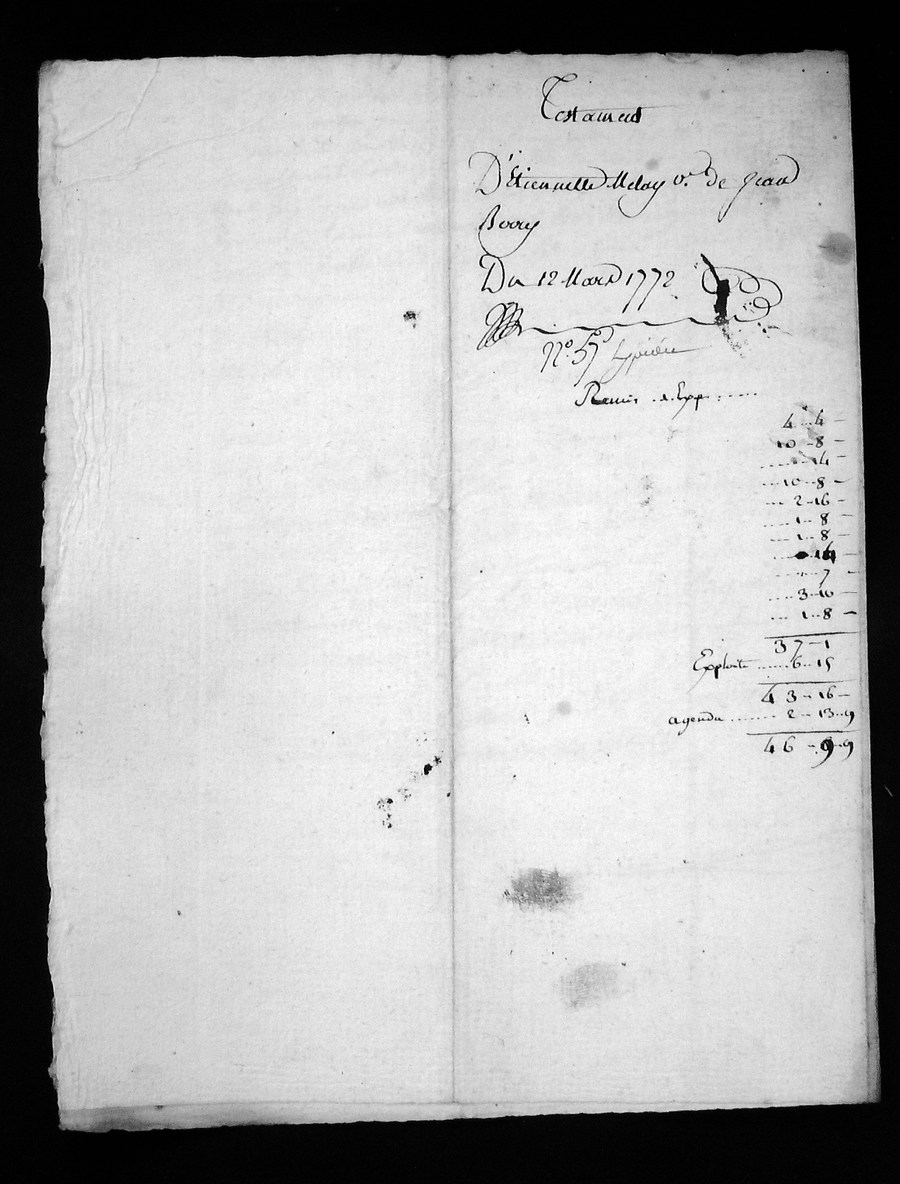 Testament
D'Etiennette Melay ve. de Jean
Berry
Du 12 Mars 1772
N°. 57
Remis .. Exp. ......
4 .. 4 -
10 - 8 -
...... 14 -
... 10 .. 8 -
... 2 - 16 -
.... 1 .. 8 -
... 1 .. 8 -
.... 14 -
.... 7 -
.... 3 - 10 -
... 1 .. 8 -
37 - 1
Exploits ...... 6 .. 15
43 - 16 -
agenda ....... 2 - 13 .. 9
46 - 9 - 9